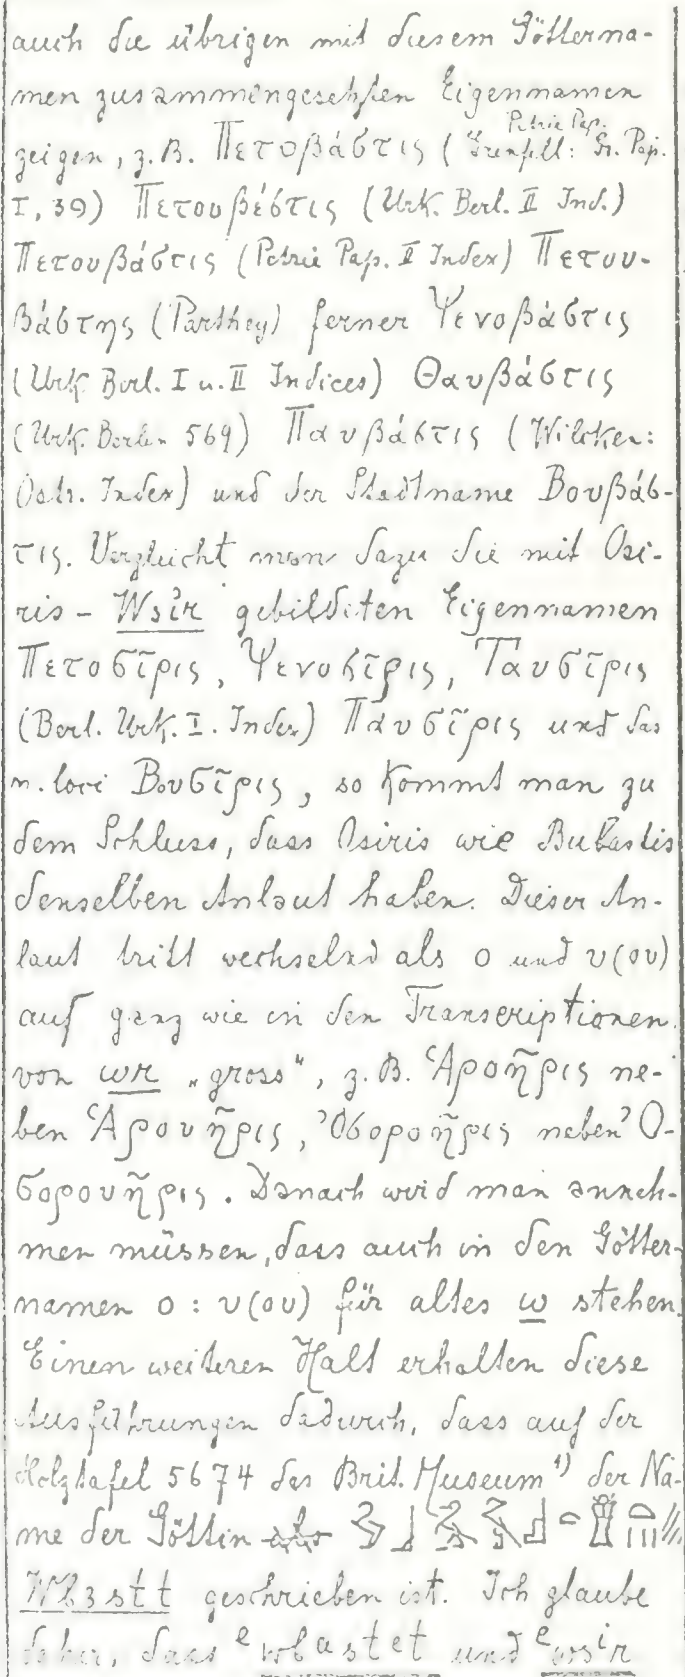 auch die übrigen mit diesem Götterna-
men zusammengesetzten Eigennamen
Petrie Pap.
zeigen, z.B. Πετοβάστις (Grenfell: Gr. Pap.
I, 39) Πετουβέστις (Urk. Berl. II Ind.)
Πετουβάστις (Petrie Pap. II Index) Πετου-
βάστης (Parthey) ferner Ψενοβάστις
(Urk. Berl. I u. II Indices) Θαυβάστις
(Urk. Berlin 569) Παυβάστις (Wilcken:
Ostr. Index) und der Stadtname Βουβάσ-
τις. Vergleicht man dazu die mit Osi-
ris - Wsir gebildeten Eigennamen
Πετοσῖρις, Ψενοσῖρις, Ταυσῖρις
(Berl. Urk. I. Index) Παυσῖρις und das
n. loci Βουσῖρις, so kommt man zu
dem Schluss, dass Osiris wie Bubastis
denselben Anlaut haben. Dieser An-
laut tritt wechselnd als ο und υ(ου)
auf ganz wie in den Transcriptionen
von wr „gross", z.B. Ἁροῆρις ne-
ben Ἁρουῆρις, Ὀσοροῆρις neben Ὀ-
σορουῆρις. Danach wird man anneh-
men müssen, dass auch in den Götter-
namen ο : υ(ου) für altes w stehen.
Einen weiteren Halt erhalten diese
Ausführungen dadurch, dass auf der
Holztafel 5674 des Brit. Museum 1) der Na-
me der Göttin
Wb3stt geschrieben ist. Ich glaube
daher, dass ewbastet und ewsir